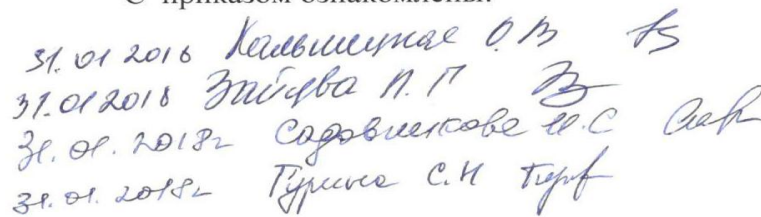 С приказом ознакомлены:
31.01 2018 О.В
31.01 2018 Зайцева Л. П
31.01.2018г Садовникова И.С
31.01.2018г Гурина С.Н